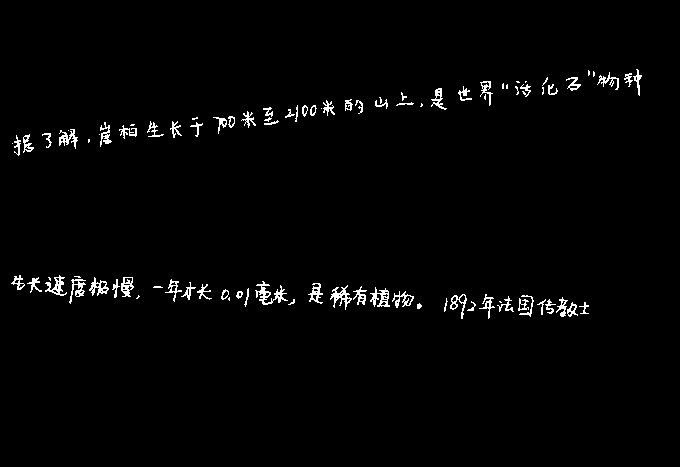 据了解，崖柏生长于700米至2100米的山上，是世界“活化石”物种
生长速度极慢，一年才长0.01毫米，是稀有植物。1892年法国传教士